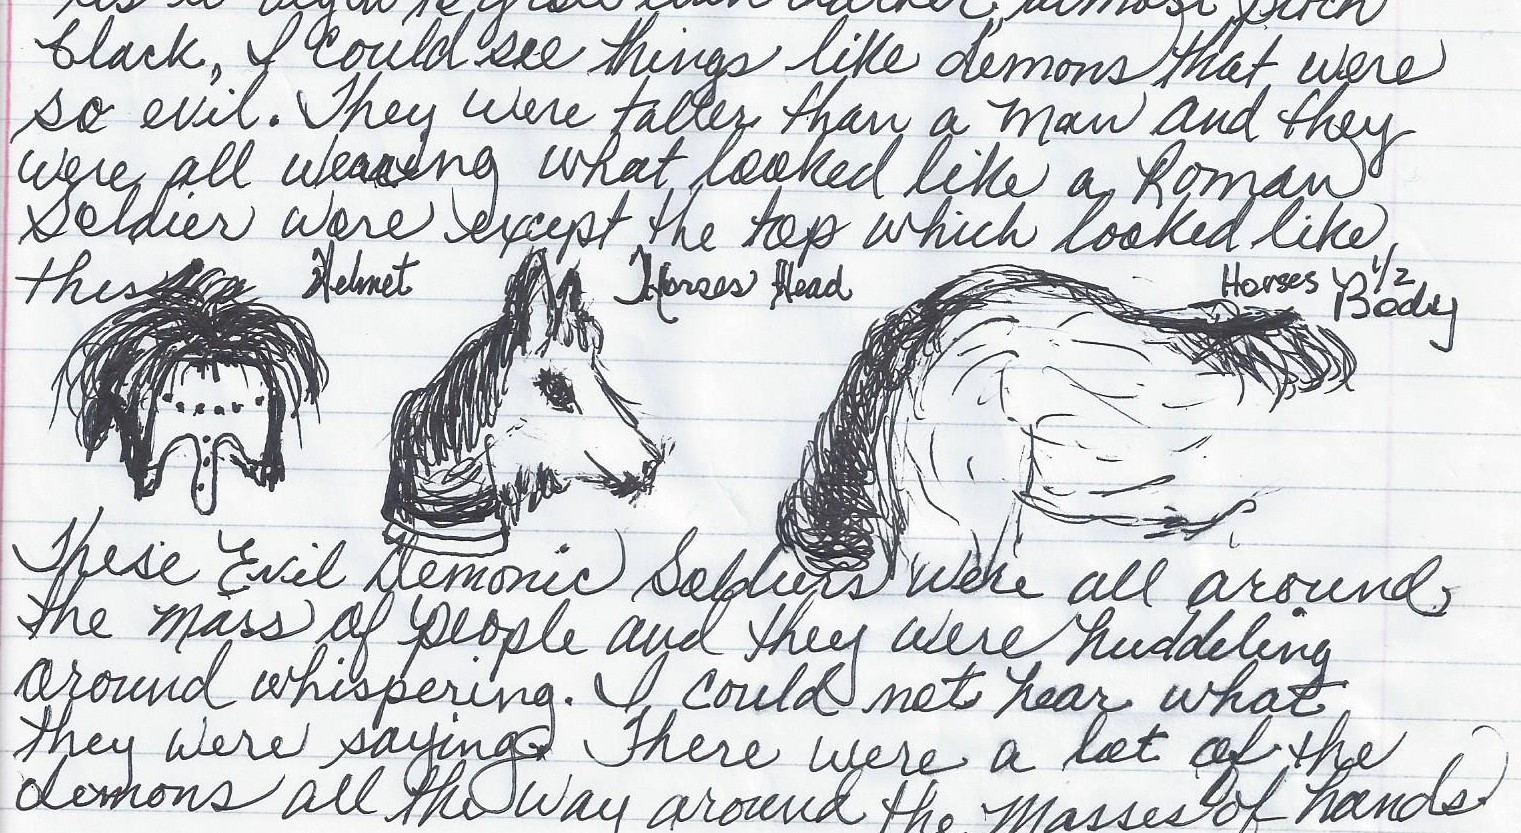 black, I could see things like demons that were
so evil. They were taller than a man and they
were all wearing what looked like a Roman
Soldier wore except the top which looked like,
this
Helmet
Horses Head
Horses 1/2
Body
These Evil Demonic Soldiers were all around
the mass of people and they were huddeling
around whispering. I could not hear what
they were saying. There were a lot of the
demons all the way around the Masses of hands